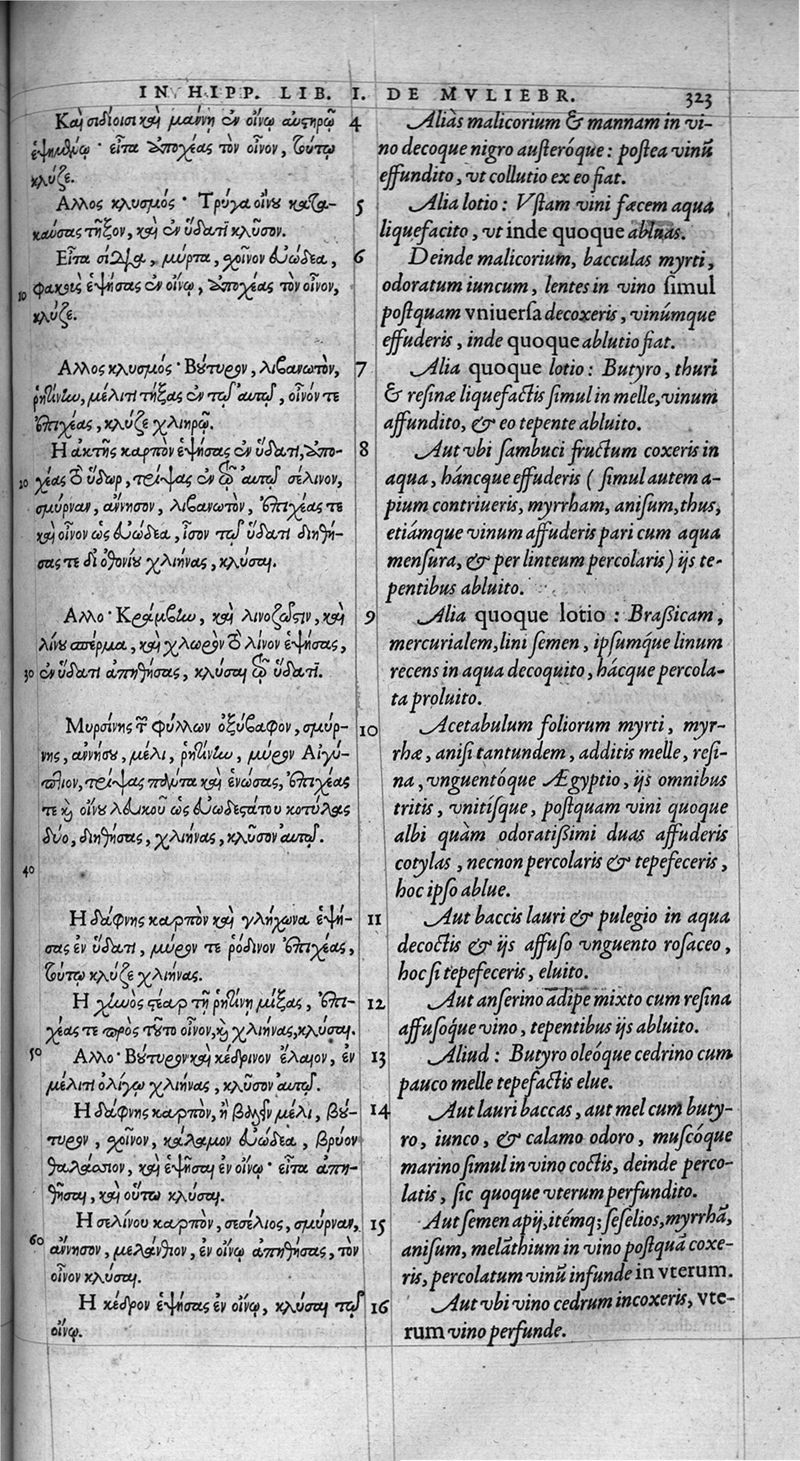 IN HIPP. LIB. I. DE MVLIEBR. 323
Καὶ σιδίοισι καὶ μάννῃ ἐν οἴνῳ αὐστηρῷ
ἑψημένῳ· εἶτα ἀποχέας τὸν οἶνον, τούτῳ
κλύζε.
Αλλος κλυσμός· Τρύγα οἴνου κατα-
καύσας τῆξον, καὶ ἐν ὕδατι κλῦσον.
Εἶτα σίδια, μύρτα, χοῖνον εὐώδεα,
10 φακοὺς ἑψήσας ἐν οἴνῳ, ἀποχέας τὸν οἶνον,
κλύζε.
Αλλος κλυσμός· Βούτυρον, λιβανωτὸν,
ῥητίνην, μέλιτι τήξας ἐν τῷ αὐτῷ, οἶνόν τε
ἐπιχέας, κλύζε χλιηρῷ.
Η ἀκτῆς καρπὸν ἑψήσας ἐν ὕδατι, ἀπο-
20 χέας τὸ ὕδωρ, τρίψας ἐν τῷ αὐτῷ σέλινον,
σμύρναν, ἄννησον, λιβανωτὸν, ἐπιχέας τε
καὶ οἶνον ὡς εὐώδεα, ἴσον τῷ ὕδατι διηθή-
σας τε δι᾽ ὀθονίου χλιήνας, κλύσαι.
Αλλο· Κράμβην, καὶ λινόζωστιν, καὶ
λίνου σπέρμα, καὶ χλωρὸν τὸ λίνον ἑψήσας,
30 ἐν ὕδατι ἀπηθήσας, κλύσαι τῷ ὕδατι.
Μυρσίνης τῶν φύλλων ὀξύβαφον, σμύρ-
νης, ἀννήσου, μέλι, ῥητίνην, μύρον Αἰγύ-
πτιον, τρίψας πάντα καὶ ἑνώσας, ἐπιχέας
τε καὶ οἴνου λευκοῦ ὡς εὐωδεστάτου κοτύλας
δύο, διηθήσας, χλιήνας, κλῦσον αὐτῷ.
40
Η δάφνης καρπὸν καὶ γλήχωνα ἑψή-
σας ἐν ὕδατι, μύρον τε ῥόδινον ἐπιχέας,
τούτῳ κλύζε χλιήνας.
Η χηνὸς στέαρ τῇ ῥητίνῃ μίξας, ἐπι-
χέας τε πρὸς τοῦτο οἶνον, καὶ χλιήνας, κλύσαι.
50 Αλλο· Βούτυρον καὶ κέδρινον ἔλαιον, ἐν
μέλιτι ὀλίγῳ χλιήνας, κλῦσον αὐτῷ.
Η δάφνης καρπὸν, ἢ βάλῃ μέλι, βού-
τυρον, χοῖνον, κάλαμον εὐώδεα, βρύον
θαλάσσιον, καὶ ἑψῆσαι ἐν οἴνῳ· εἶτα ἀπη-
θῆσαι, καὶ οὕτω κλύσαι.
Η σελίνου καρπὸν, σεσέλιος, σμύρναν,
60 ἄννησον, μελάνθιον, ἐν οἴνῳ ἀπηθήσας, τὸν
οἶνον κλύσαι.
Η κέδρον ἑψήσας ἐν οἴνῳ, κλύσαι τῷ
οἴνῳ.
4 Aliàs malicorium & mannam in vi-
no decoque nigro austeróque: postea vinũ
effundito, vt collutio ex eo fiat.
5 Alia lotio: Vstam vini fæcem aqua
liquefacito, vt inde quoque abluas.
6 Deinde malicorium, bacculas myrti,
odoratum iuncum, lentes in vino simul
postquam vniuersa decoxeris, vinúmque
effuderis, inde quoque ablutio fiat.
7 Alia quoque lotio: Butyro, thuri
& resinæ liquefactis simul in melle, vinum
affundito, & eo tepente abluito.
8 Aut vbi sambuci fructum coxeris in
aqua, háncque effuderis (simul autem a-
pium contriueris, myrrham, anisum, thus,
etiámque vinum affuderis pari cum aqua
mensura, & per linteum percolaris) ijs te-
pentibus abluito.
9 Alia quoque lotio: Brassicam,
mercurialem, lini semen, ipsumq́ue linum
recens in aqua decoquito, hácque percola-
ta proluito.
10 Acetabulum foliorum myrti, myr-
rhæ, anisi tantundem, additis melle, resi-
na, vnguentóque Ægyptio, ijs omnibus
tritis, vnitisque, postquam vini quoque
albi quàm odoratissimi duas affuderis
cotylas, necnon percolaris & tepefeceris,
hoc ipso ablue.
11 Aut baccis lauri & pulegio in aqua
decoctis & ijs affuso vnguento rosaceo,
hoc si tepefeceris, eluito.
12 Aut anserino adipe mixto cum resina
affusoq́ue vino, tepentibus ijs abluito.
13 Aliud: Butyro oleóque cedrino cum
pauco melle tepefactis elue.
14 Aut lauri baccas, aut mel cum buty-
ro, iunco, & calamo odoro, muscóque
marino simul in vino coctis, deinde perco-
latis, sic quoque vterum perfundito.
15 Aut semen apij, itémq; seselios, myrrhã,
anisum, melãthium in vino postquã coxe-
ris, percolatum vinũ infunde in vterum.
16 Aut vbi vino cedrum incoxeris, vte-
rum vino perfunde.